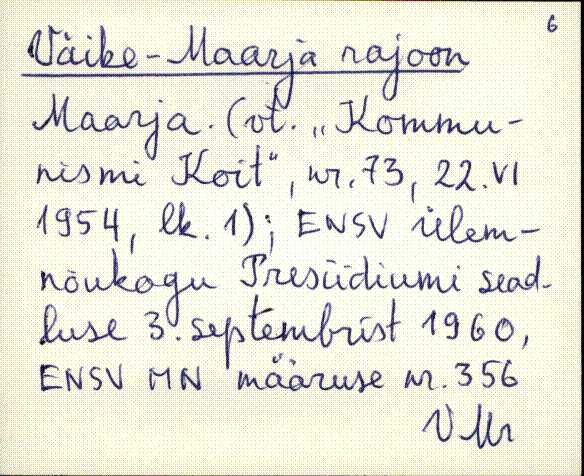 6
Väike-Maarja rajoon
Maarja. (vt. „Kommu-
nismi Koit", nr. 73, 22. VI
1954, lk. 1); ENSV Ülem-
nõukogu Presiidiumi sead-
luse 3. septembrist 1960,
ENSV MN määruse nr. 356
V Mr